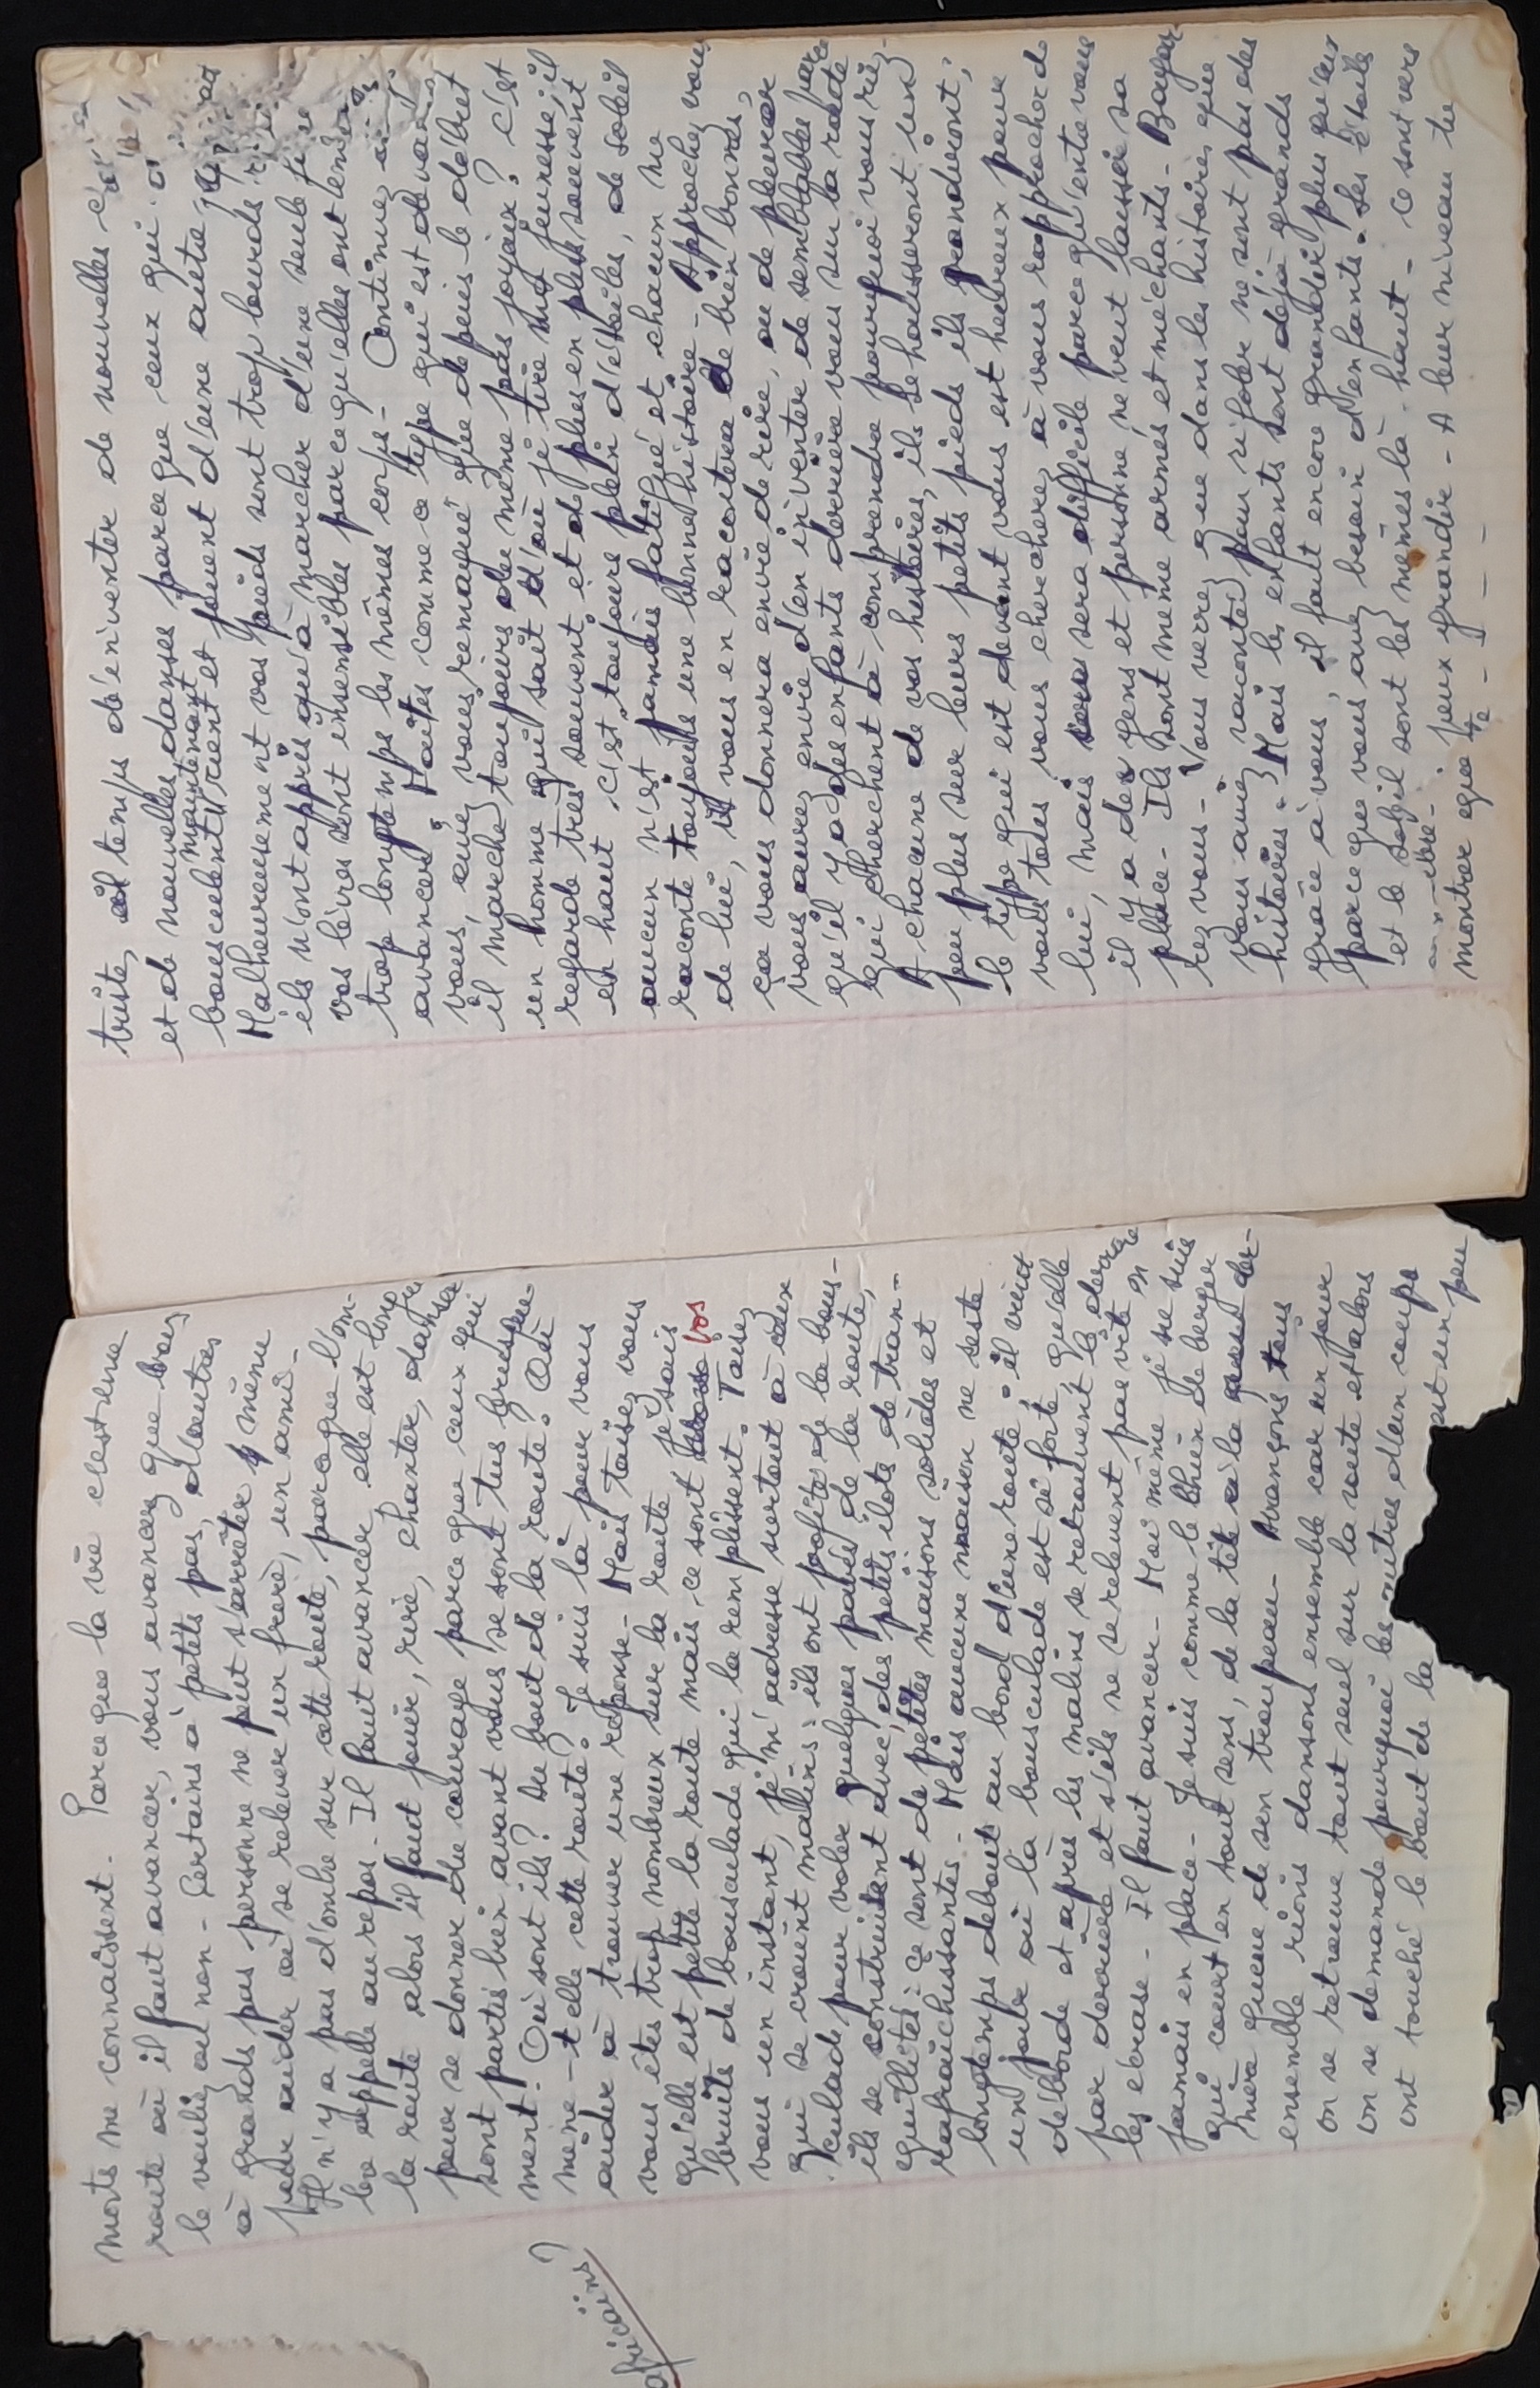 morts me connaissent. Parce que la vie c'est une
route où il faut avancer, vous avancez que vous
le vouliez ou non - Certains à petits pas, d'autres
à grands pas personne ne peut s'arrêter même
pour aider à se relever un frère, un ami.
Il n'y a pas d'ombre sur cette route, parce que l'om-
bre appelle au repos. Il faut avancer elle est longue
la route alors il faut jouer, rire, chanter, danser
pour se donner du courage parce que ceux qui
sont partis bien avant vous se sont tus brusque-
ment. Où sont ils? Au bout de la route? Où
mène-t-elle cette route? Je suis là pour vous
aider à trouver une réponse - Mais taisez vous
vous êtes trop nombreux sur la route je sais
qu'elle est petite la route mais ce sont vos
bruits de bousculade qui la remplissent. Taisez
vous un instant, je m'adresse surtout à ceux
qui se croient malins: ils ont profité de la bous-
culade pour voler quelques pavés de la route,
ils se construisent avec, des petits ilots de tran-
quillités: ce sont de petites maisons solides et
rafraîchissantes - Mais aucune maison ne reste
longtemps debout au bord d'une route: il vient
un jour où la bousculade est si forte qu'elle
déborde et après les malins se retrouvent le derrière
par derrière et s'ils ne se relèvent pas vite on
les écrase - Il faut avancer - Moi même je ne suis
jamais en place - Je suis comme le chien de berger
qui court en tout sens, de la tête à la der-
nière queue de son troupeau - Avançons tous
ensemble rions dansons ensemble car un jour
on se retrouve tout seul sur la route et alors
on se demande pourquoi les autres d'un coup
ont touché le bout de la
un peu
africains?
triste, il temps d'inventer de nouvelles
et de nouvelles danses parce que ceux qui
bousculent rient et jouent d'une autre
maintenant
Malheureusement vos pieds sont trop lourds
ils n'ont appris qu'à marcher d'une seule
vos lèvres sont insensibles parce qu'elles ont
trop longtemps les mêmes corps - Continuez
avancez, Faites comme ce type qui est devant
vous, avez vous remarqué que depuis le début
il marche toujours du même pas joyeux? C'est
un homme qui sait d'où je tire ma jeunesse, il
regarde très souvent et de plus en plus souvent
en haut c'est toujours plein d'étoiles, de soleil
aucun n'est jamais fatigué et chacun me
raconte toujours une bonne histoire - Approchez vous
de lui, il vous en racontera de bien bonnes,
ça vous donnera envie de rire, ou de pleurer
vous aurez envie d'en inventer de semblables parce
qu'il y a des enfants derrière vous sur la route
qui cherchent à comprendre pourquoi vous riez -
A chacune de vos histoires, ils se hausseront un
peu plus sur leurs petits pieds ils grandiront;
le type qui est devant vous est heureux pour
vous tous vous chercherez à vous rapprocher de
lui, mais sera difficile parce qu'entre vous
il y a des gens et personne ne veut laisser sa
place - Ils sont même armés et méchants - Bagar
rez vous - Vous verrez que dans les histoires que
vous aviez racontées pour rigoler ne sont plus des
histoires - Mais les enfants sont déjà grands
grâce à vous, il faut encore grandir plus qu'eux
parce que vous avez besoin d'enfants - Les étoiles
et le soleil sont les mêmes là-haut - Ce sont vers
montrer que tu peux grandir - A leur niveau tu